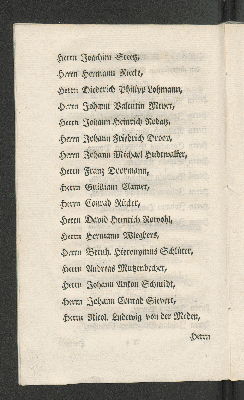 Herrn Joachim
Herrn Hermann Riecke,
Herrn Diederich Philipp Lohmann,
Herrn Johann Valentin Meyer,
Herrn Johann Heinrich
Herrn Johann Friedrich Droop,
Herrn Johann Michael Hudtwalker,
Herrn Franz Doormann,
Herrn Guilliam Clamer,
Herrn Conrad Rücker,
Herrn David Heinrich Rowohl,
Herrn Hermann Wieghers,
Herrn Bernh. Hieronymus Schlüter,
Herrn Andreas Mutzenbecher,
Herrn Johann Anton Schmidt,
Herrn Johann Conrad Sievert,
Herrn Nicol. Ludewig von der Meden,
Herrn